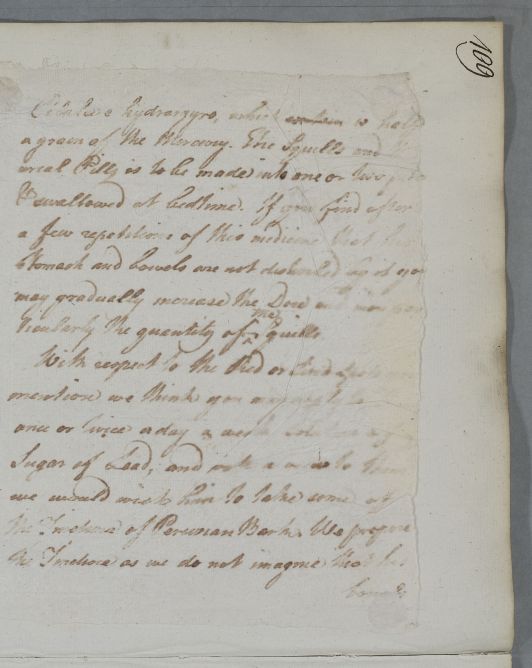 109
hydrargyro, which is half
a grain of the Mercury. The Squills and
urial Pills is to be made into one or two
& swallowed at bedtime. If you find after
a few repetitions of this medicine that his
Stomach and bowels are not disturbed by it you
may gradually increase the Dose and more par
ticularly the quantity of the Squills
With respect to the Red or
mention we think you may
once or twice a day a weak
Sugar of Lead, and with a
we would wish him to take some of
the Tincture of Peruvian Bark. We prefer
the Tincture as we do not imagine that his
bowels